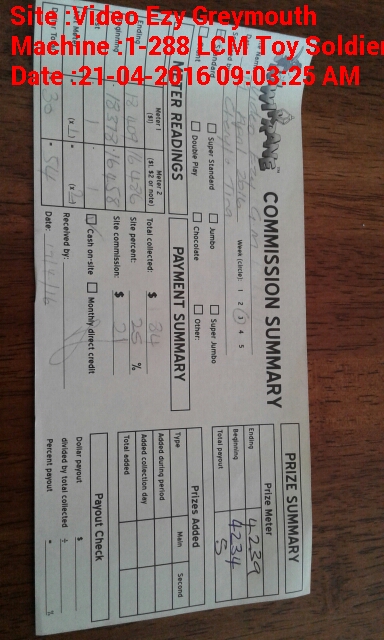 Site :Video Ezy Greymouth
Machine :1-288 LCM Toy Soldier
Date :21-04-2016 09:03:25 AM
COMMISSION SUMMARY
Week (circle): 1 2 3 4 5
Super Standard
Jumbo
Super Jumbo
Double Play
Chocolate
Other:
METER READINGS
Meter 1
($1)
Meter 2
($1, $2 or note)
Ending
Beginning
(x 1)
PAYMENT SUMMARY
Total collected: $ 84
Site percent: 25 %
Site commission: $ 21
Cash on-site
Monthly direct credit
Received by:
Date:
PRIZE SUMMARY
Prize Meter
Ending 4239
Beginning 4234
Total payout 5
Prizes Added
Type Main Second
Added during period
Added collection day
Total added
Payout Check
Dollar payout $
divided by total collected ÷
Percent payout • %